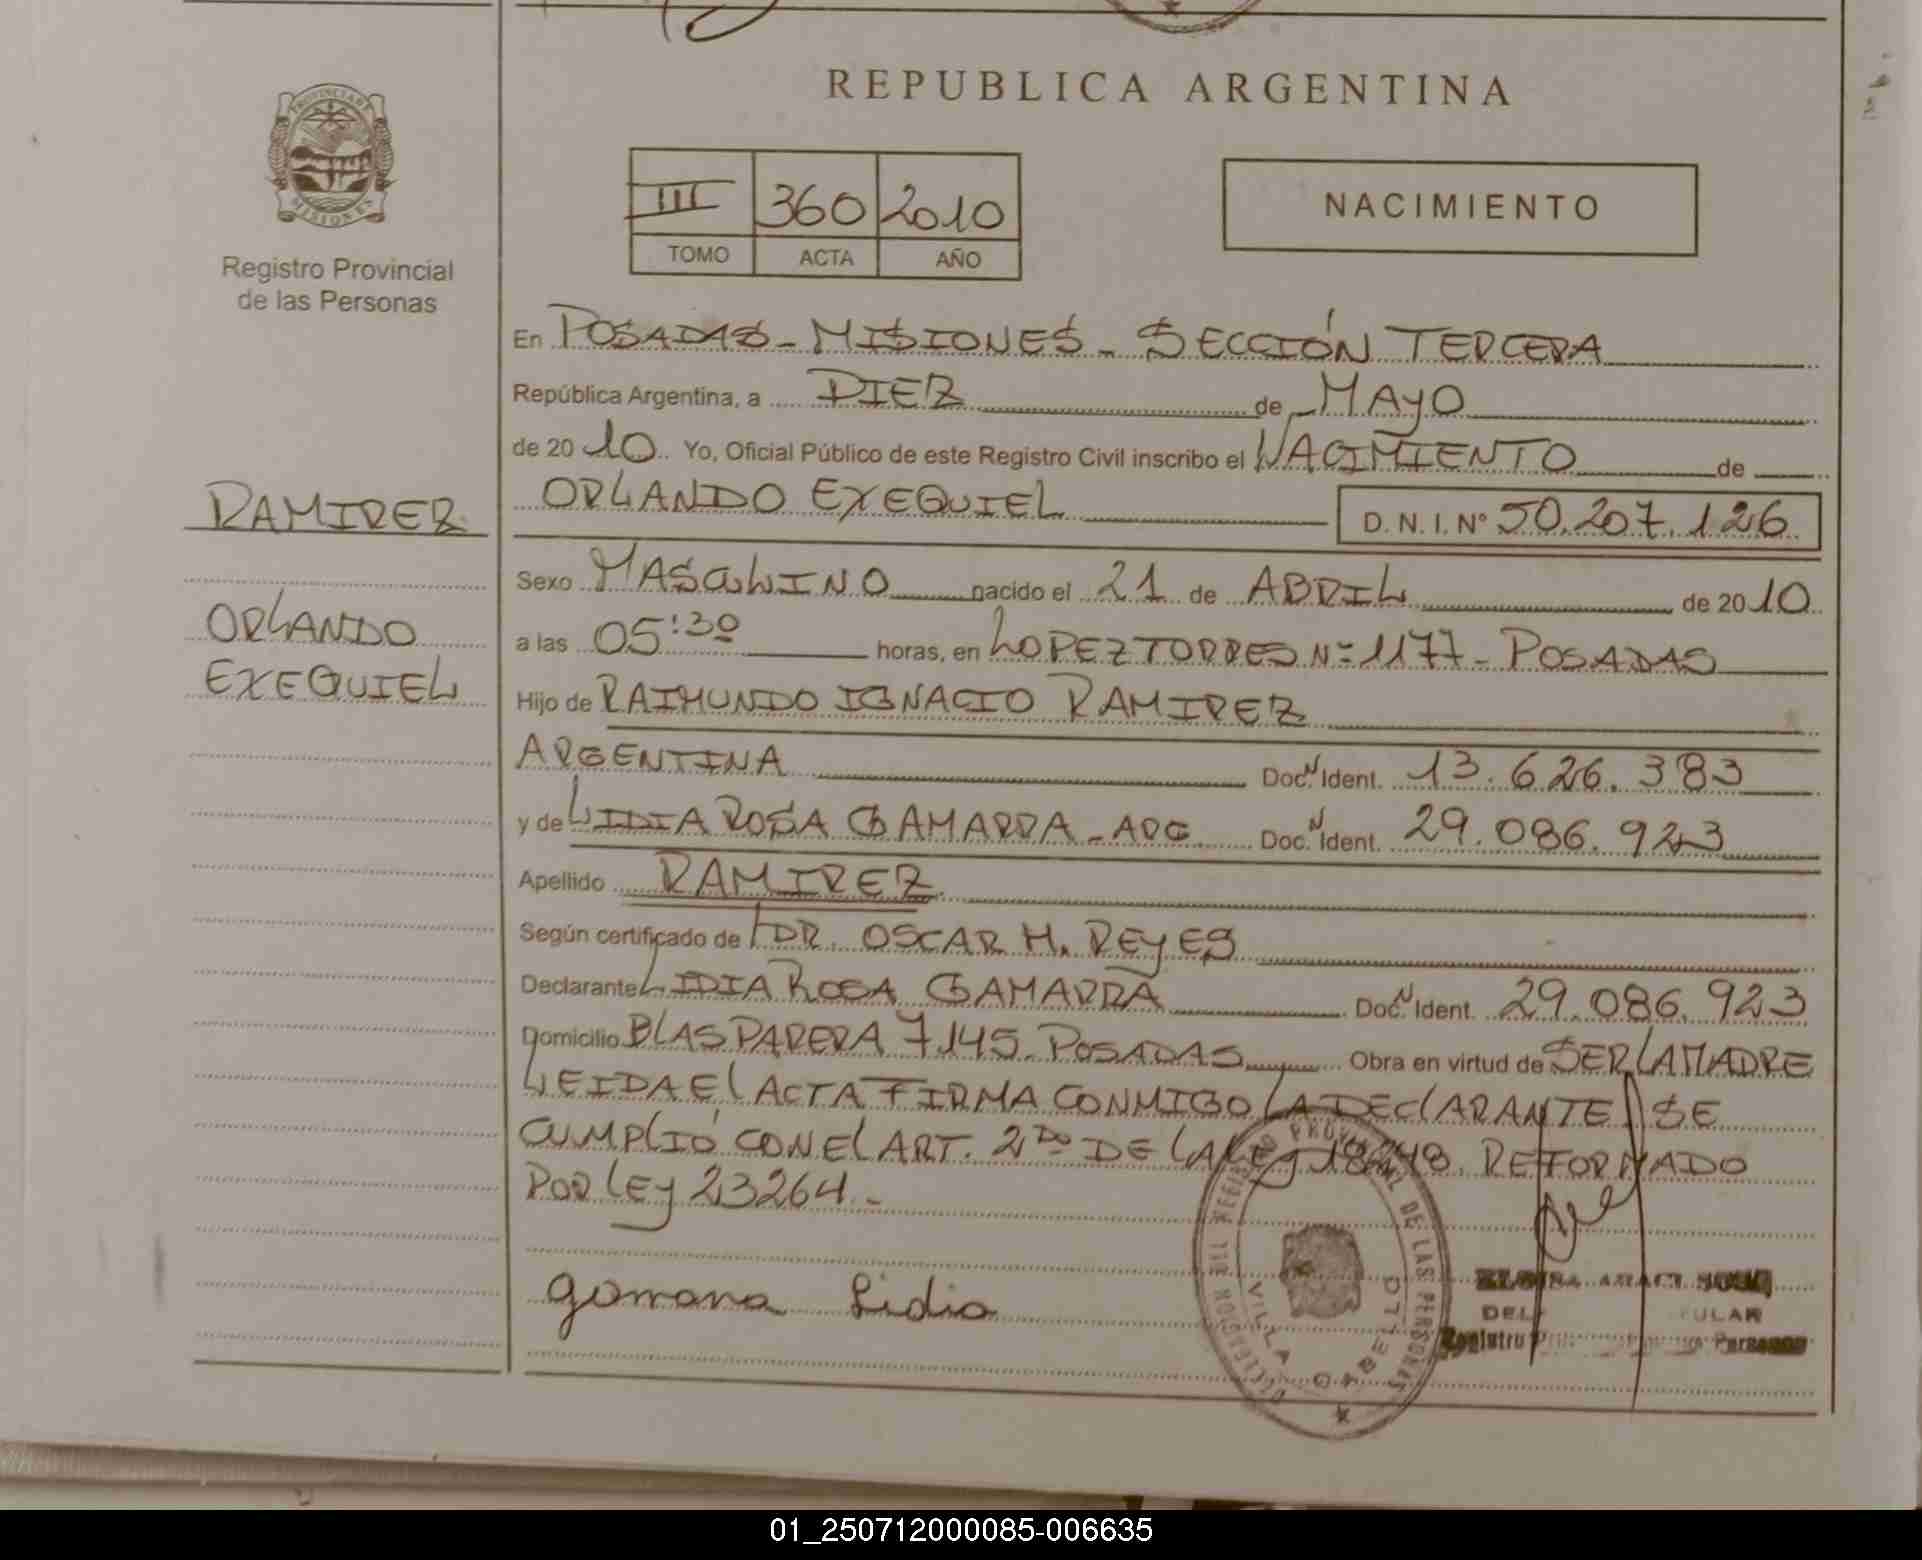 REPUBLICA ARGENTINA
PROVINCIA DE
MISIONES
Registro Provincial
de las Personas
III 360 2010
TOMO ACTA AÑO
NACIMIENTO
En POSADAS - MISIONES - SECCIÓN TERCERA
República Argentina, a DIEZ de MAYO
de 2010 Yo, Oficial Público de este Registro Civil inscribo el NACIMIENTO de
RAMIREZ
ORLANDO EXEQUIEL D.N.I. N° 50.207.126
Sexo MASCULINO nacido el 21 de ABRIL de 2010
ORLANDO
a las 05:30 horas, en LOPEZ TORRES Nº 1177 - POSADAS
EXEQUIEL
Hijo de RAIMUNDO IGNACIO RAMIREZ
ARGENTINA Doc. N Ident. 13.626.383
y de LIDIA ROSA GAMARRA - ARG. Doc. N Ident. 29.086.923
Apellido RAMIREZ
Según certificado de DR. OSCAR H. REYES
Declarante LIDIA ROSA GAMARRA Doc. N Ident. 29.086.923
Domicilio BLAS PARERA 7145 - POSADAS Obra en virtud de SER LA MADRE
LEIDA EL ACTA FIRMA CONMIGO LA DECLARANTE SE
CUMPLIÓ CON EL ART. 2do DE LA LEY 18248 REFORMADO
POR LEY 23264.-
DELEGACION DEL REGISTRO PROVINCIAL DE LAS PERSONAS
VILLA CABELLO
gamarra Lidia
Registro Personas
01_250712000085-006635